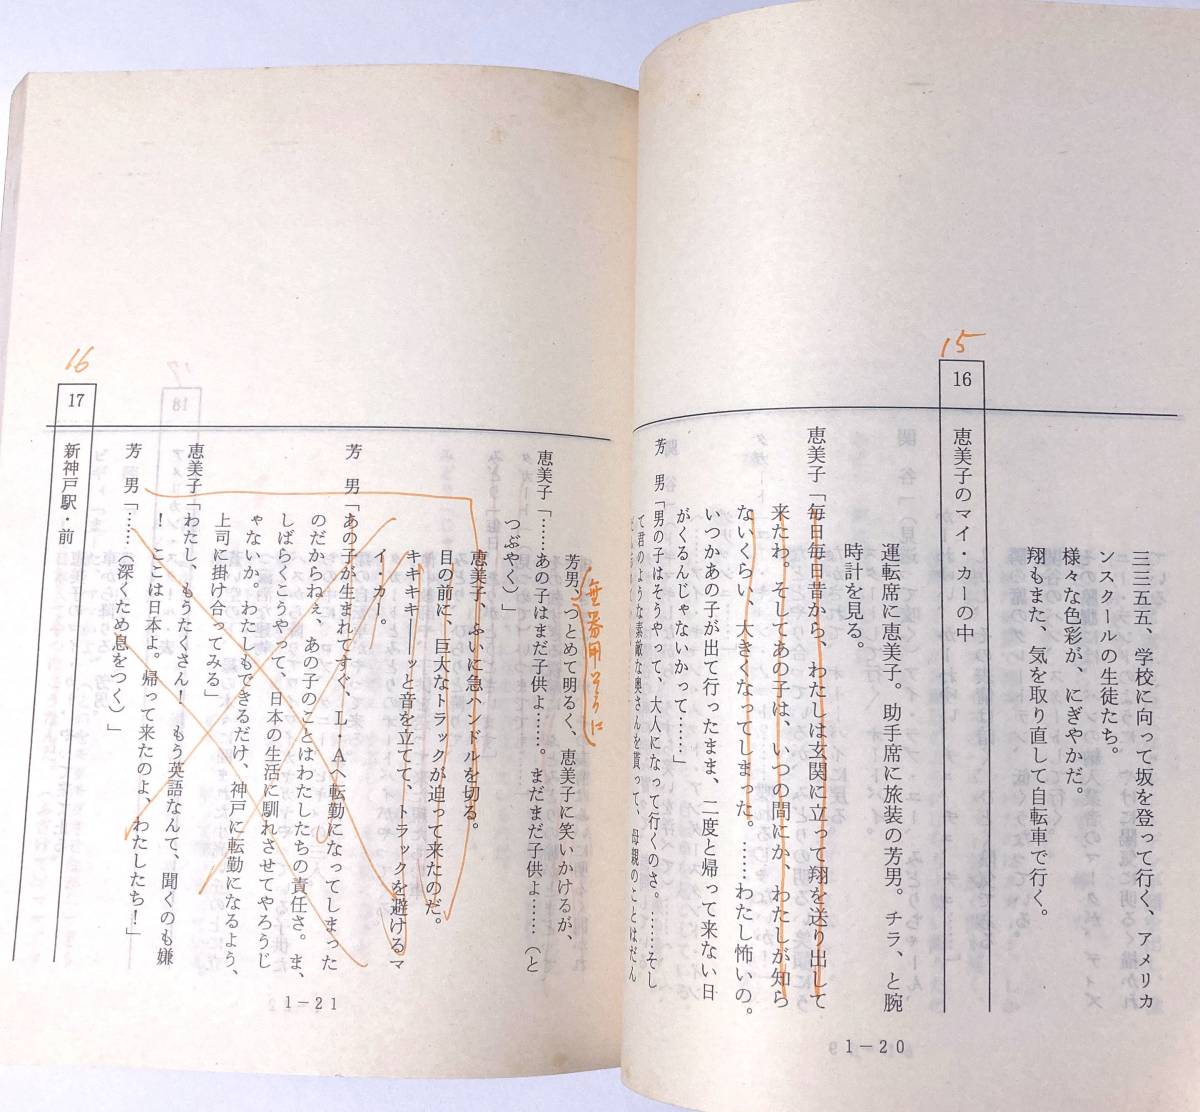 三三五五、学校に向って坂を登って行く、アメリカ
ンスクールの生徒たち。
様々な色彩が、にぎやかだ。
翔もまた、気を取り直して自転車で行く。
15
16
恵美子のマイ・カーの中
運転席に恵美子。助手席に旅装の芳男。チラ、と腕
時計を見る。
恵美子「毎日毎日昔から、わたしは玄関に立って翔を送り出して
来たわ。そしてあの子は、いつの間にか、わたしが知ら
ないくらい、大きくなってしまった。……わたし怖いの。
いつかあの子が出て行ったまま、二度と帰って来ない日
がくるんじゃないかって……」
芳　男「男の子はそうやって、大人になって行くのさ。……そし
て君のような素敵な奥さんを貰って、母親のことはだん
1－20
芳男、つとめて明るく、恵美子に笑いかけるが、
無器用そうに
恵美子「……あの子はまだ子供よ……。まだまだ子供よ……（と
つぶやく）」
恵美子、ふいに急ハンドルを切る。
目の前に、巨大なトラックが迫って来たのだ。
キキキキ――ッと音を立てて、トラックを避けるマ
イ・カー。
芳　男「あの子が生まれてすぐ、L・Aへ転勤になってしまった
のだからねぇ、あの子のことはわたしたちの責任さ。ま、
しばらくこうやって、日本の生活に馴れさせてやろうじ
ゃないか。わたしもできるだけ、神戸に転勤になるよう、
上司に掛け合ってみる」
恵美子「わたし、もうたくさん！　もう英語なんて、聞くのも嫌
！　ここは日本よ。帰って来たのよ、わたしたち！」
芳　男「……（深くため息をつく）」
16
17
新神戸駅・前
1－21